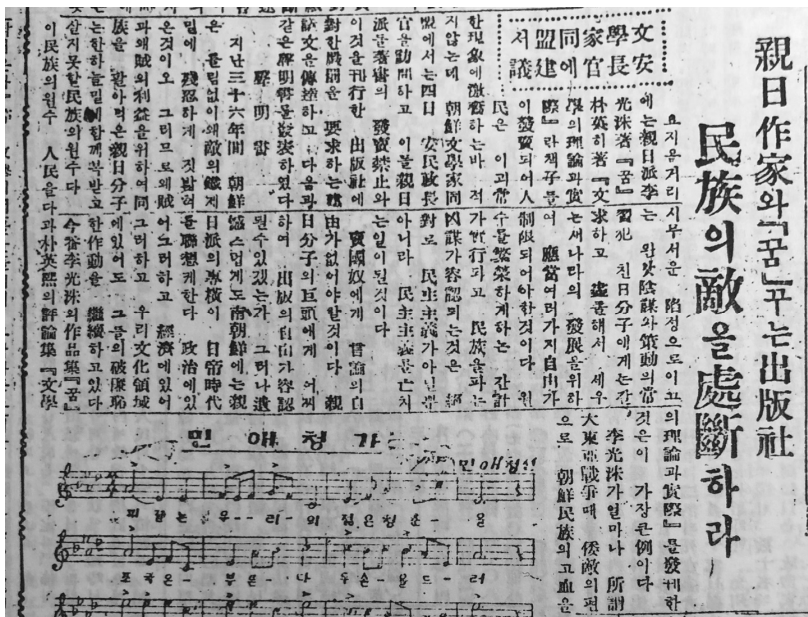 親日作家와『꿈』꾸는出版社
民族의敵을處斷하라
文學家同盟서
安長官에建議
요지음거리
에는親日派李
光洙著『꿈』
朴英熙著『文
學의理論과實
際』란책子들
이發賣되어人
民은 이괴常
한現象에激憤하는바 저
지않는데 朝鮮文學家同
盟에서는四日 安民政長
官을訪問하고 이불親日
派들著書의 發賣禁止와
이것을刊行한 出版社에
對한嚴罰을 要求하는建
議文을傳達하고 다음과
같은聲明書를發表하였다
聲明書
지난三十六年間 朝鮮
은 틀림없이왜敵의鐵제
밑에 殘忍하게 짓밟혀
온것이오 그리므로왜賊
과왜賊의利益을위하여同
族을 팔아먹은親日分子
는한하늘밑에함께
살지못할民族의원수다
이民族의원수 人民을다
시무서운 陷穽으로이끄
는 왼갓陰謀와策動의常
習犯 친日分子에게는
求하고 해서 세우
는새나라의 發展을위하
여 應當여러가지自由가
制限되어야한것이다 원
수들繁榮하게하는 간계
가實行되고 民族을파는
凶謀가容認되는것은 絶
對로 民主主義가아닐뿐
아니라 民主主義를亡치
는일이될것이다
賣國奴에게 言論의自
由가없어야할것이다 親
日分子의巨頭에게 어찌
하여 出版의自由가容認
될수있겠는가 그러나遺
憾스럽게도南朝鮮에는親
日派의專橫이 日帝時代
를聯想케한다 政治에있
어그러하고 經濟에있어
그러하고 우리文化領域
에있어도 그들의破廉恥
한作動을 繼續하고있다
今番李光洙의作品集『꿈』
과朴英熙의評論集『文學
의理論과實際』를發게한
것은이 가장큰例이다
李光洙가얼마나 所謂
大東亞戰爭때 倭敵의편
으로 朝鮮民族의고血을
민애청가
민애청
끓는 우-리-의 젊은청춘-을
조국은- 부른-다 두손을 드-러